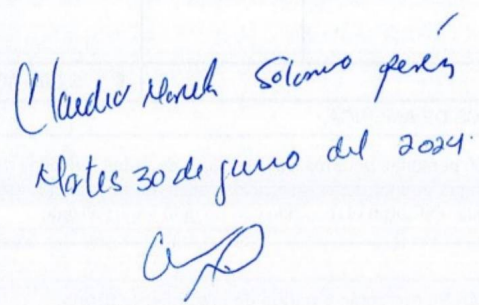 Claudia Solano Pérez
Martes 30 de junio del 2024.